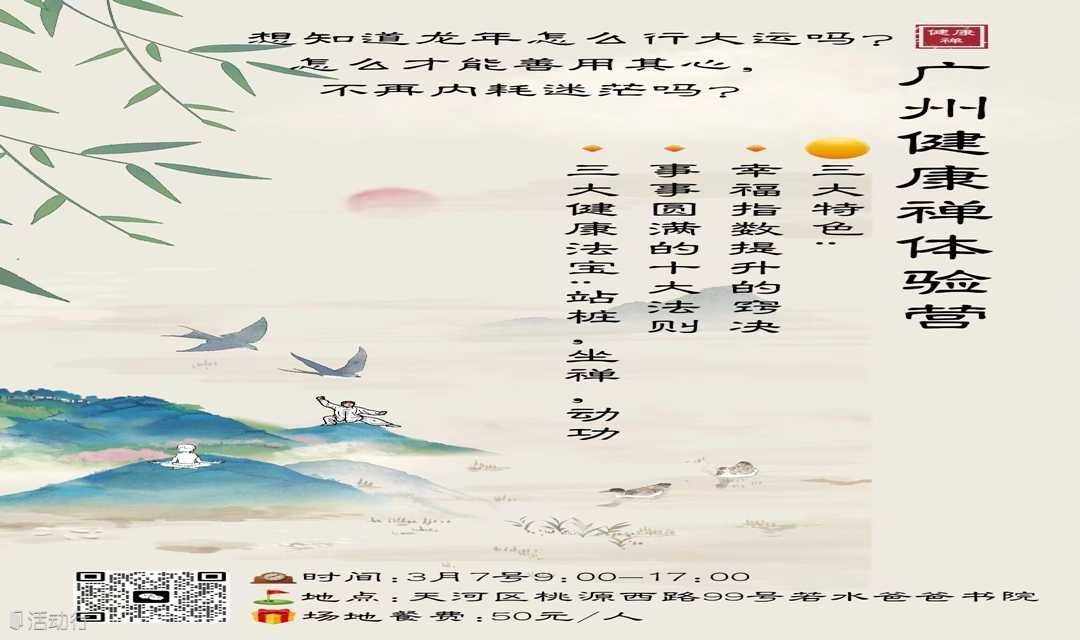 想知道龙年怎么行大运吗？
怎么才能善用其心，
不再内耗迷茫吗？
健康
禅
广州健康禅体验营
三大特色：
幸福指数提升的窍决
事事圆满的十大法则
三大健康法宝：站桩，坐禅，动功
时间：3月7号9:00—17:00
地点：天河区桃源西路99号若水爸爸书院
场地餐费：50元/人
活动行